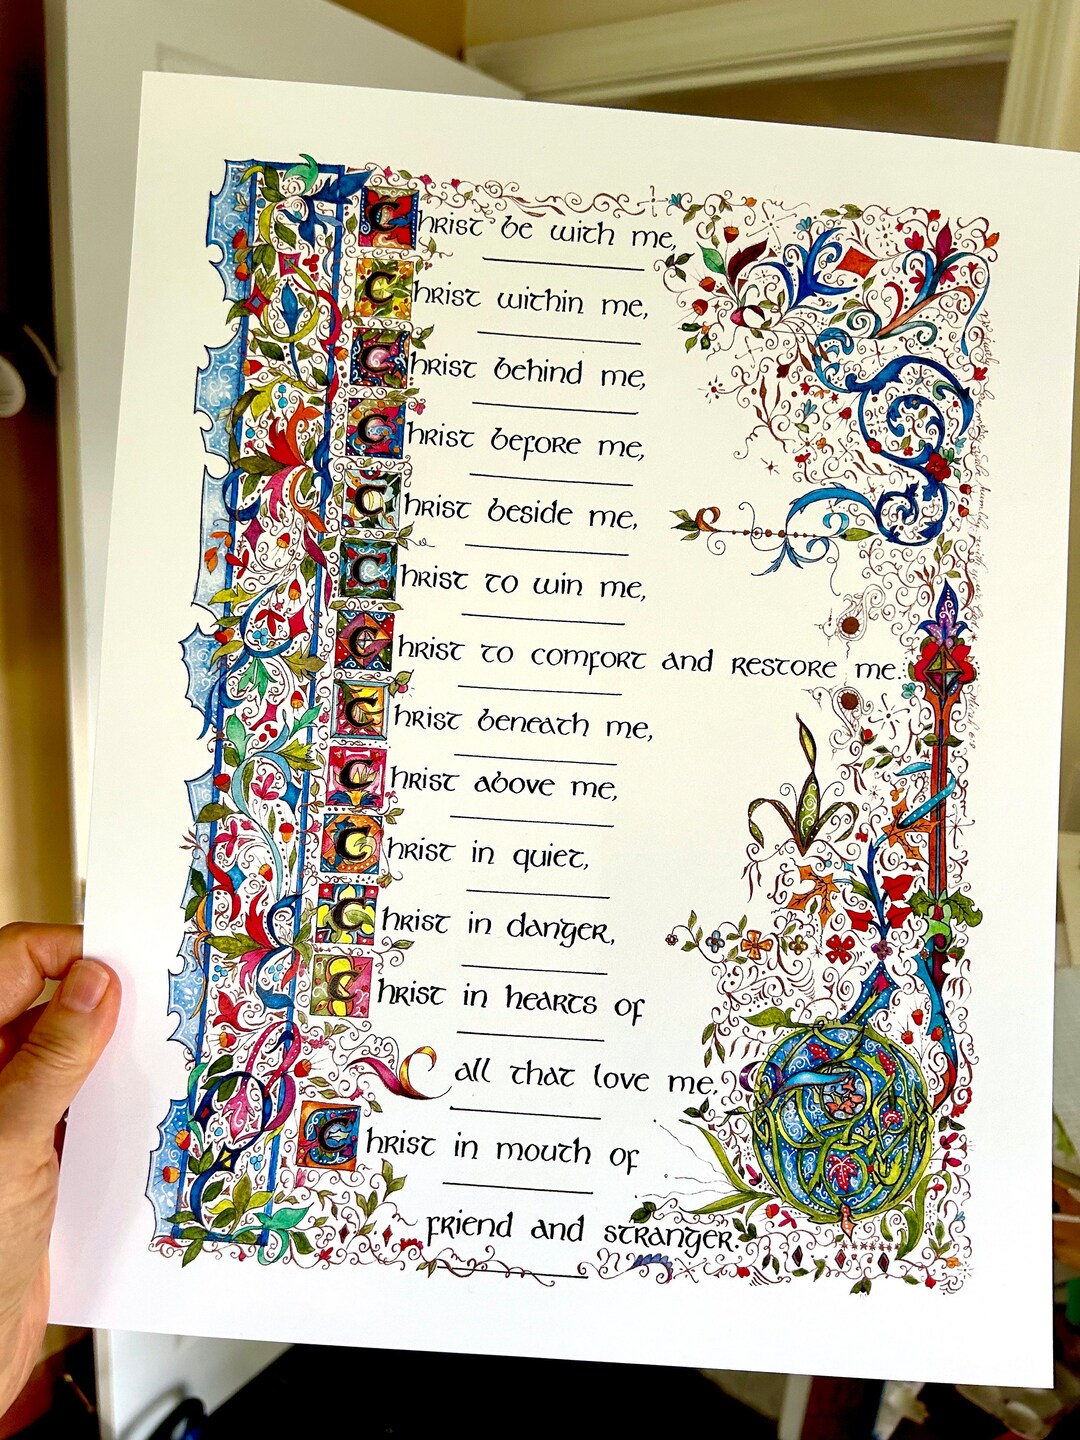 Christ be with me,
Christ within me,
Christ behind me,
Christ before me,
Christ beside me,
Christ to win me,
Christ to comfort and restore me.
Christ beneath me,
Christ above me,
Christ in quiet,
Christ in danger,
Christ in hearts of
all that love me,
Christ in mouth of
friend and stranger.